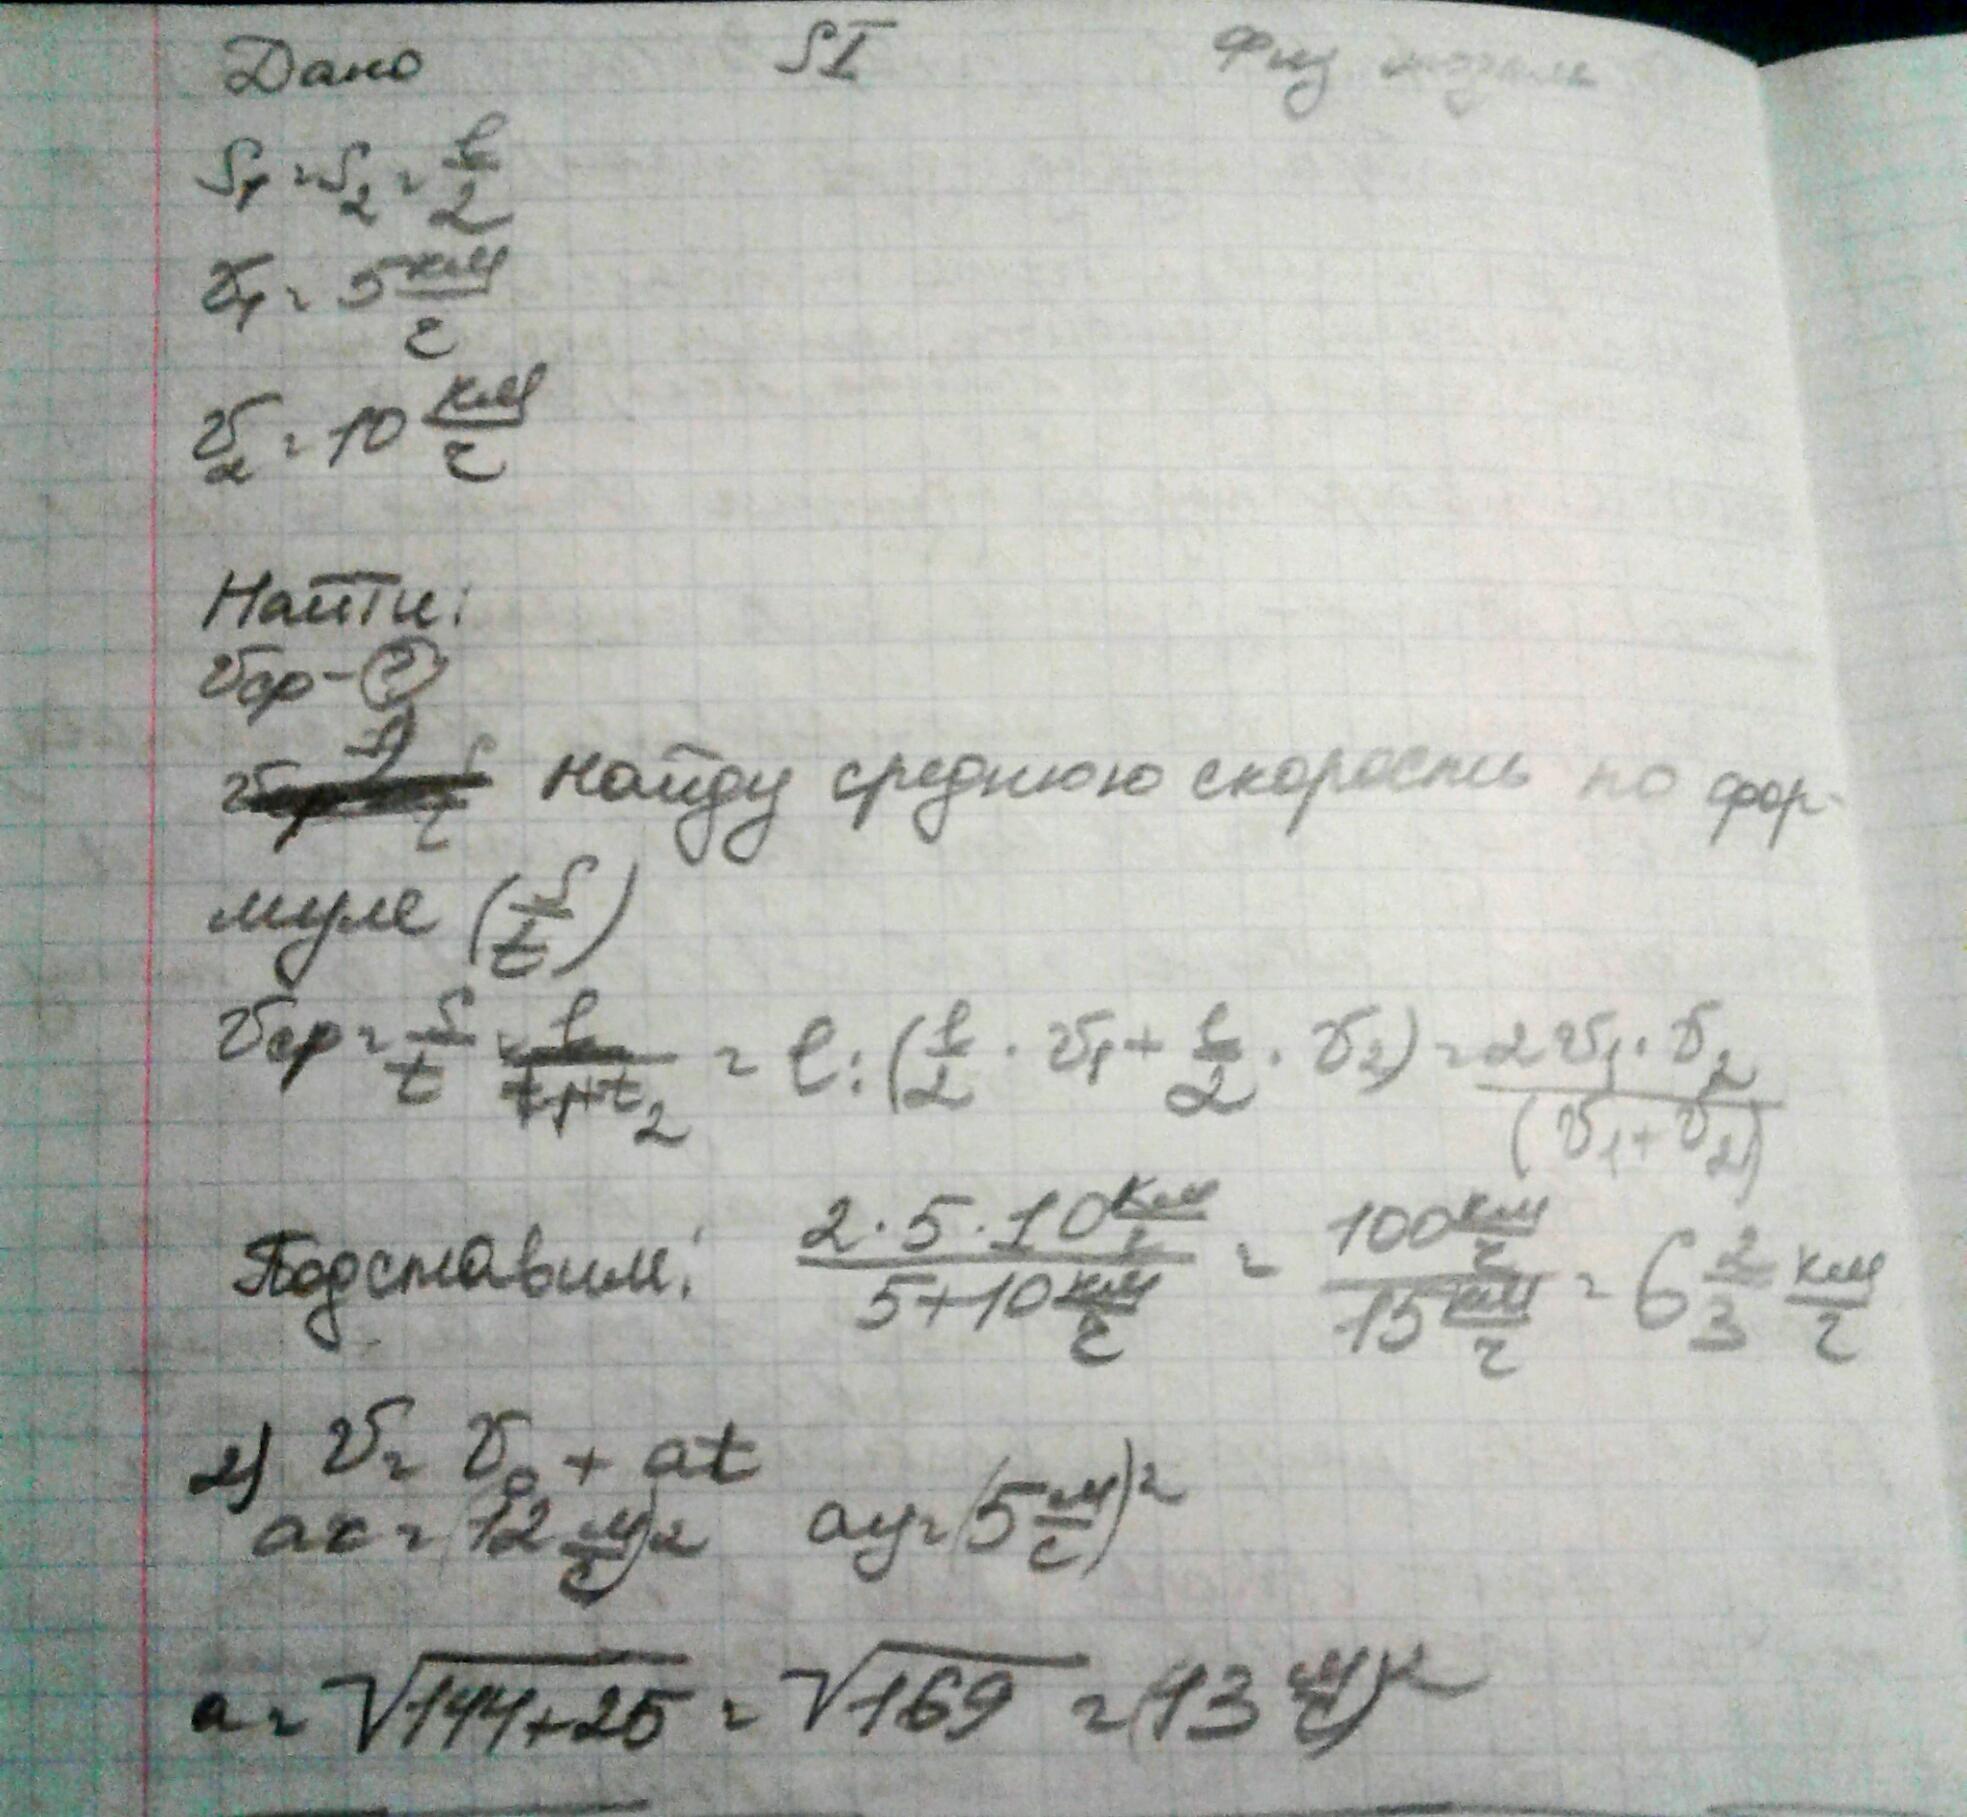 Дано SI Физ модель
S₁ = S₂ = l/2
v₁ = 5 км/ч
v₂ = 10 км/ч
Найти:
vср - ?
найду среднюю скорость по фор-
муле (S/t)
vср = S/t = l/(t₁+t₂) = l : (l/2 · v₁ + l/2 · v₂) = 2v₁ · v₂/(v₁ + v₂)
Подставим: 2·5·10 км/ч / 5+10 км/ч = 100 км/ч / 15 км/ч = 6 2/3 км/ч
2) v = v₀ + at
ax = (12 м/с)² ay = (5 м/с)²
a = √144+25 = √169 = (13 м/с)²